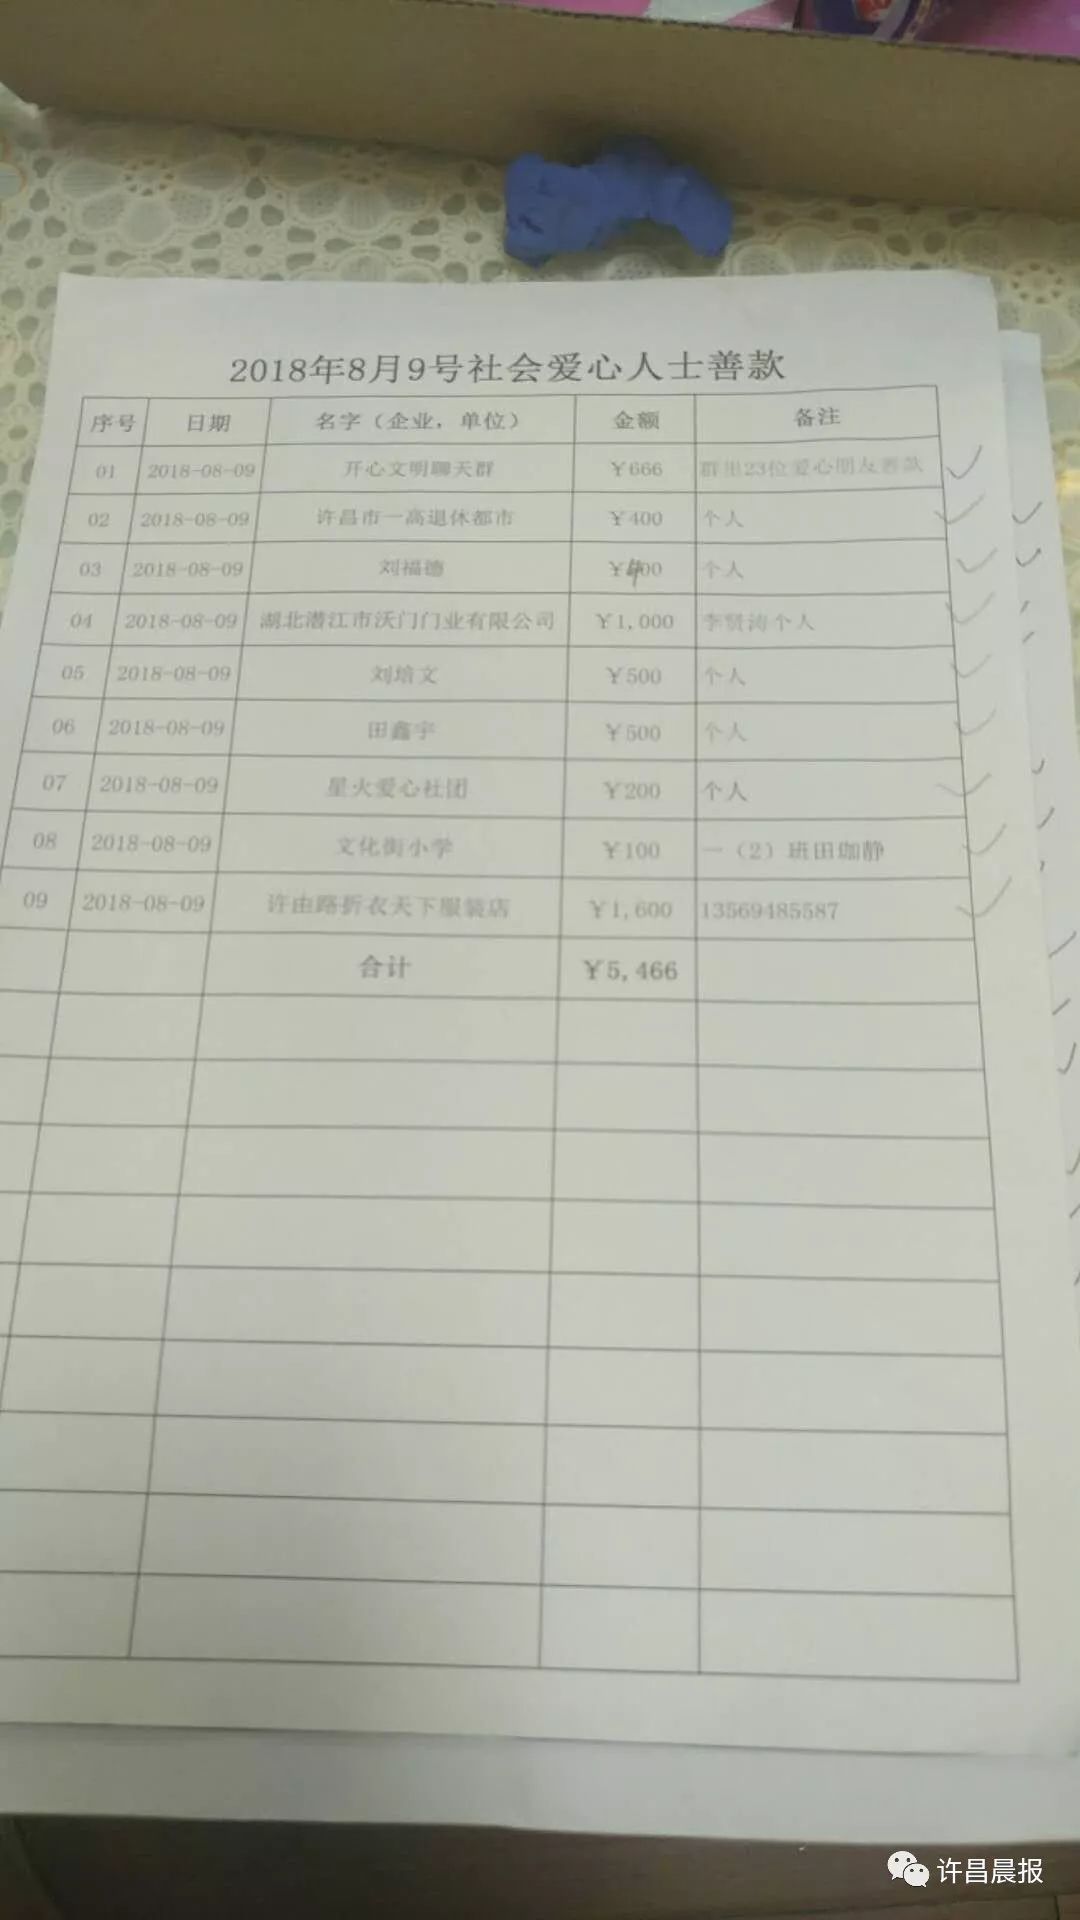 2018年8月9号社会爱心人士善款
序号 日期 名字（企业，单位） 金额 备注
01 2018-08-09 开心文明聊天群 ¥666 群里23位爱心朋友善款
02 2018-08-09 许昌市一高退休都市 ¥400 个人
03 2018-08-09 刘福德 ¥400 个人
04 2018-08-09 湖北潜江市沃门门业有限公司 ¥1,000 李贤涛个人
05 2018-08-09 刘培文 ¥500 个人
06 2018-08-09 田鑫宇 ¥500 个人
07 2018-08-09 星火爱心社团 ¥200 个人
08 2018-08-09 文化街小学 ¥100 一（2）班田珈静
09 2018-08-09 许由路折衣天下服装店 ¥1,600 13569485587
合计 ¥5,466
许昌晨报